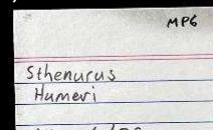 MPG
Sthenurus
Humeri